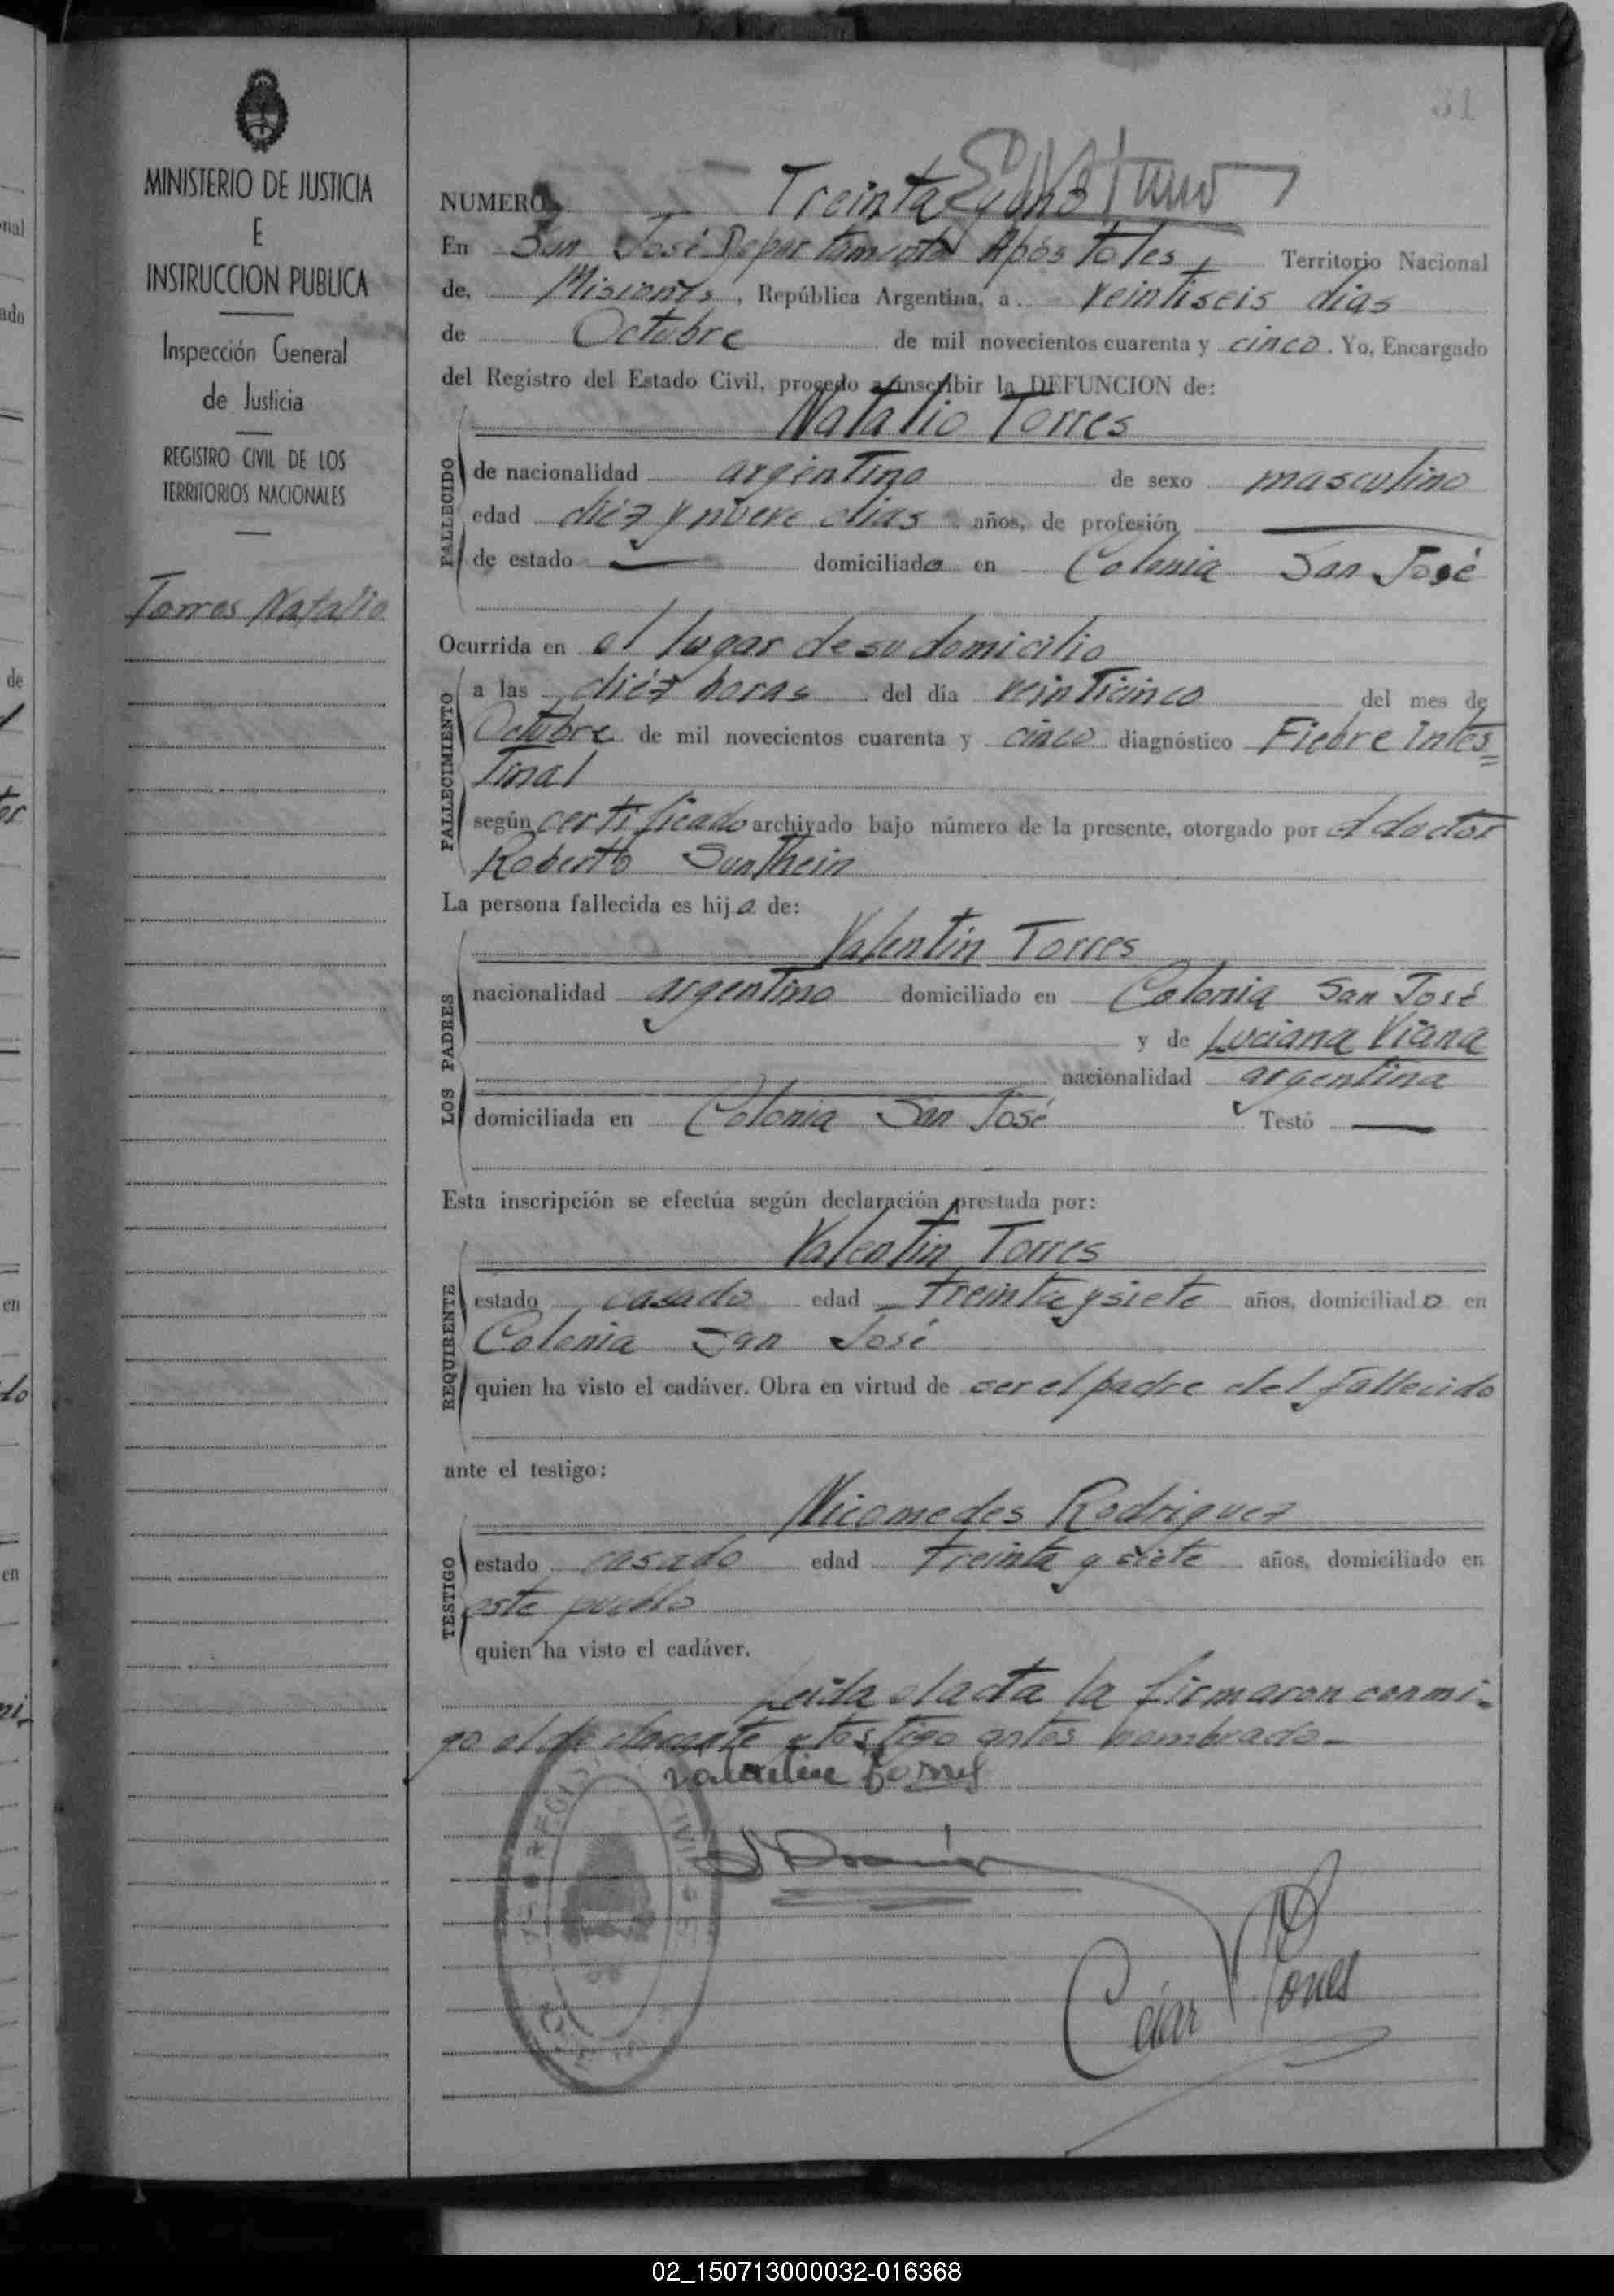 31
MINISTERIO DE JUSTICIA
E
INSTRUCCION PUBLICA
Inspección General
de Justicia
REGISTRO CIVIL DE LOS
TERRITORIOS NACIONALES
Torres Natalio
NUMERO Treinta y uno
En San José Departamento Apóstoles, Territorio Nacional
de, Misiones, República Argentina, a veintiseis días
de Octubre de mil novecientos cuarenta y cinco. Yo, Encargado
del Registro del Estado Civil, procedo a inscribir la DEFUNCION de:
Natalio Torres
FALLECIDO
de nacionalidad argentino de sexo masculino
edad diéz y nueve días años, de profesión
de estado domiciliado en Colonia San José
Ocurrida en el lugar de su domicilio
FALLECIMIENTO
a las diéz horas del día veinticinco del mes de
Octubre de mil novecientos cuarenta y cinco diagnóstico Fiebre Intes
tinal
según certificado archivado bajo número de la presente, otorgado por el doctor
Roberto Sunthein
La persona fallecida es hijo de:
Valentín Torres
LOS PADRES
nacionalidad argentino domiciliado en Colonia San José
y de Luciana Viana
nacionalidad argentina
domiciliada en Colonia San José Testó
Esta inscripción se efectúa según declaración prestada por:
Valentín Torres
REQUIRENTE
estado casado edad treinta y siete años, domiciliado en
Colonia San José
quien ha visto el cadáver. Obra en virtud de ser el padre del fallecido
ante el testigo:
Nicomedes Rodriguez
TESTIGO
estado casado edad treinta y siete años, domiciliado en
este pueblo
quien ha visto el cadáver.
Leida el acta la firmaron conmi-
go el declarante y testigo antes nombrado.-
César Pones
02_150713000032-016368